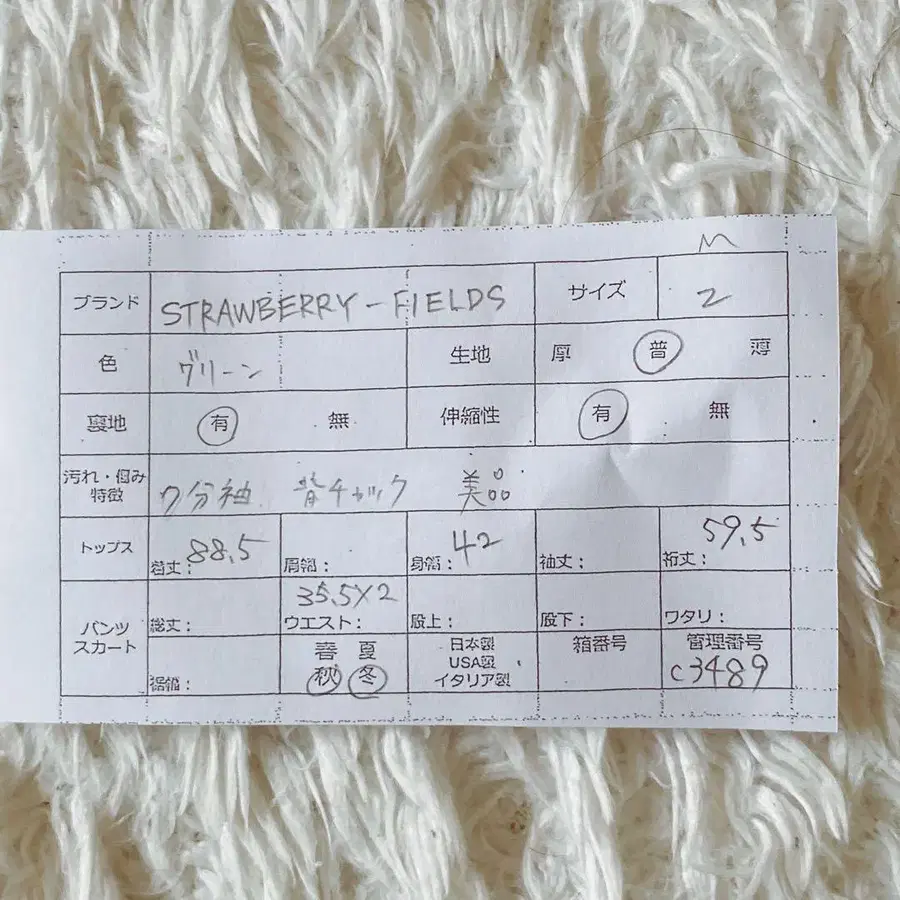 M
ブランド STRAWBERRY-FIELDS サイズ 2
色 グリーン 生地 厚 普 薄
裏地 有 無 伸縮性 有 無
汚れ・傷み
特徴 7分袖 背チャック 美品
トップス 着丈: 88.5 肩幅: 身幅: 42 袖丈: 裄丈: 59.5
パンツ
スカート 総丈: ウエスト: 35.5×2 股上: 股下: ワタリ:
裾幅: 春 夏 日本製 箱番号 管理番号
秋 冬 USA製 C3489
イタリア製